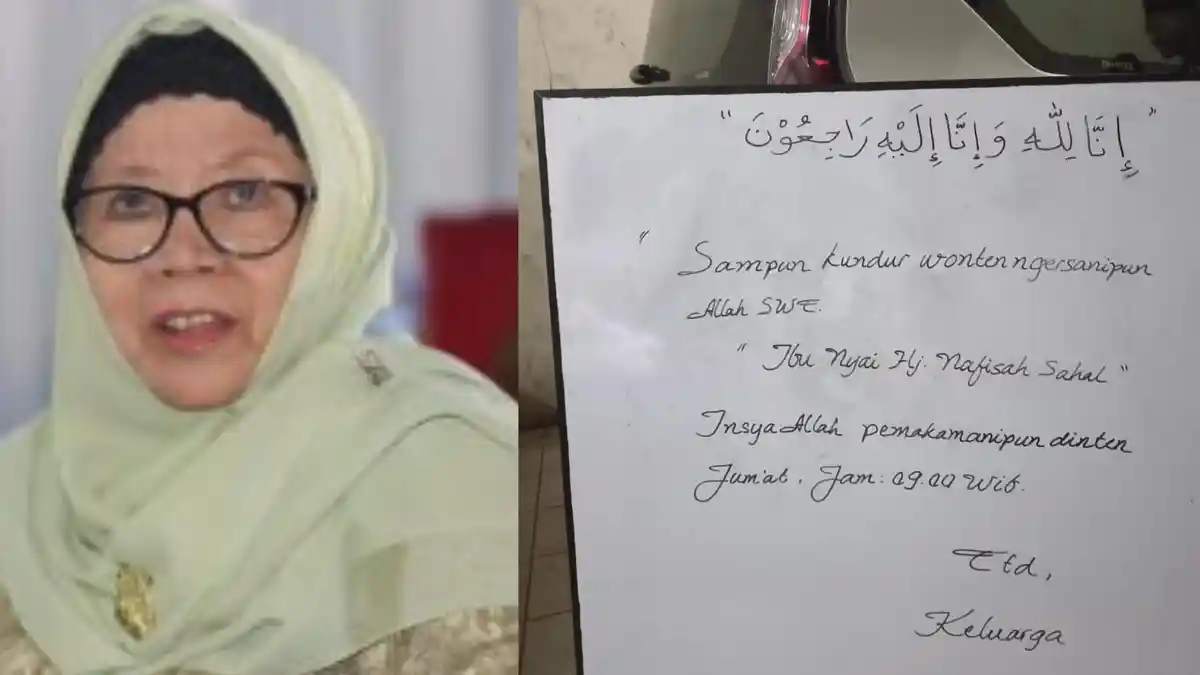 " إِنَّا لِلّٰهِ وَإِنَّا إِلَيْهِ رَاجِعُوْنَ "
" Sampun kundur wonten ngersanipun
Allah SWT.
" Ibu Nyai Hj. Nafisah Sahal "
InsyaAllah pemakamanipun dinten
Jum'at, Jam : 09.00 Wib.
Ttd,
Keluarga